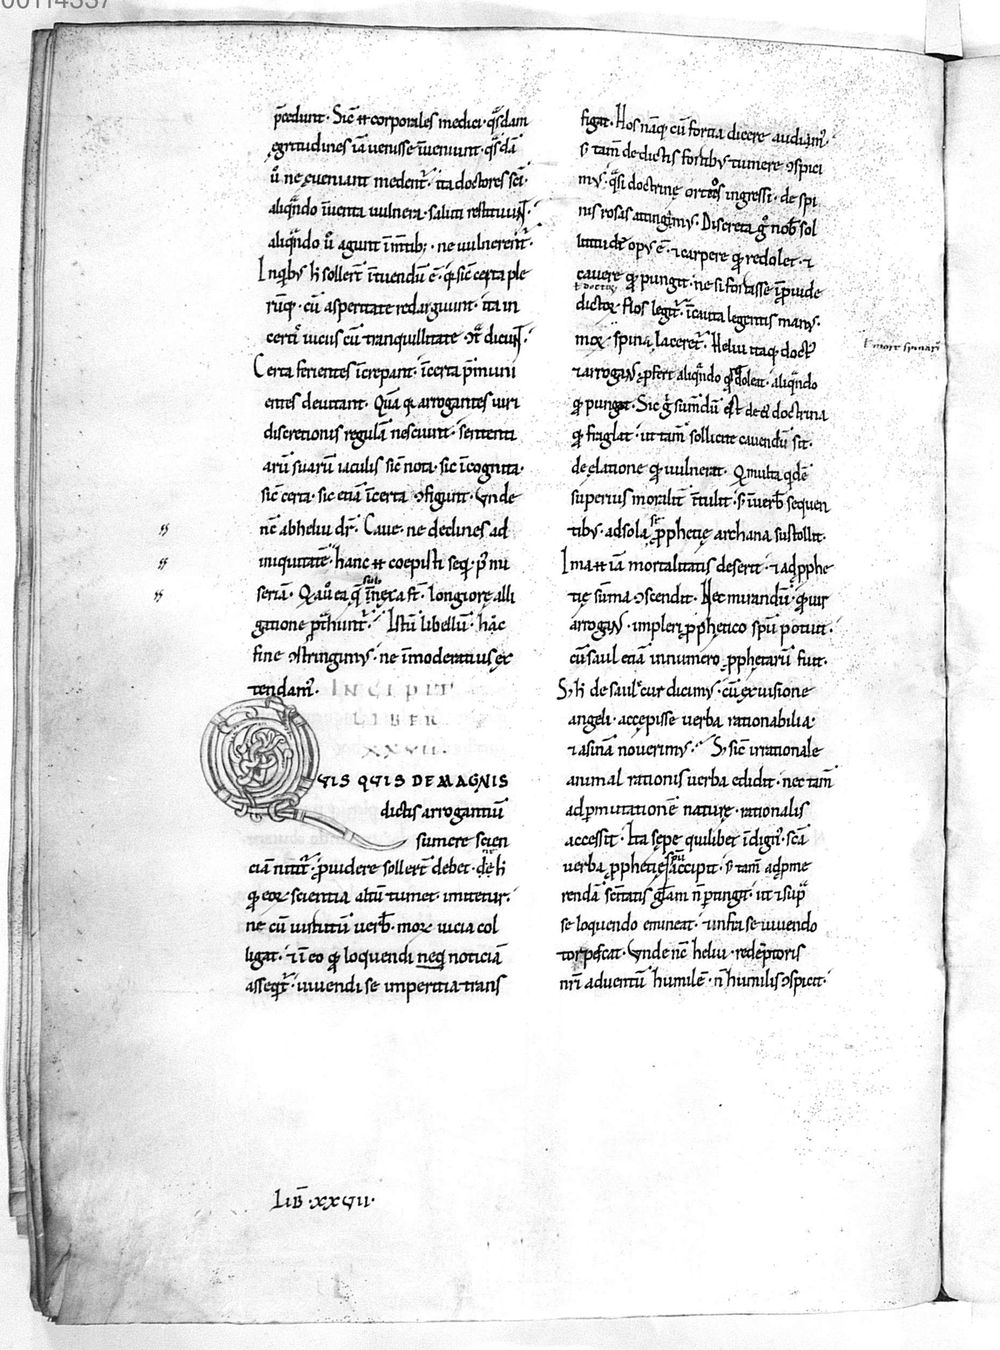 00114337
p̄cedunt. Sic̄ &̄ corporales medici. qͣsdam
ęgritudines iā uenisse īueniunt. qͣsdā
ů ne eueniant medent᷑. ita doctores sc̄i.
aliqn̄do īuenta uulnera. saluti restituunt.
aliqn̄do ů agunt īmtib;. ne uulnerent᷑.
In qͥbꝰ h̄ sollert̄ ītuendū ē. qd̄ sic̄ certa ple
rūq̄. cū asperitate redarguunt. ita in
certͣ uicus cū tranquillitate. ꝯtͣ dicunt.
Certa ferientes īcrepant. īcerta p̄muni
entes deuitant. Quā qͥ arrogantes uiri
discretionis regulā nesciunt. sententi
arū suarū iaculis sic̄ nota. sic īcognita.
sic̄ certa. sic etiā īcerta ꝯfigunt. Vnde
nc̄ ab heliu dr̄. Caue. ne declines ad
iniquitatē. hanc &̄ coepisti seq̄. p̄ mi
seriā. Q̄ aů ea q̄ sub īnexa st̄. longiore alli
gatione p̄thunt᷑. Istū libellū. hac
fine ꝯstringimꝰ. ne īmoderatius ex
tendam᷑. INCIPIT
LIBER
XXVII.
QVIS QVIS DE MAGNIS
dictis arrogantiū
sumere scien
ciā nitit᷑. p̄uidere sollert̄ debet. ne de h̄
qd̄ eoꝝ scientia altū tumet. imitetur.
ne cū uirtutū uerb̄. moꝝ uicia col
ligat. & ī eo qd̄ loquendi neq; noticiā
asseqt᷑. uiuendi se imperitia trans
figat. Hos nāq̄ cū fortia dicere audiam᷑.
s; tam̄ de dictis fortibꝰ tumere ꝯspici
mꝰ. qͣsi doctrinę ortos ingressi. de spi
nis rosas attingimꝰ. Discreta gͦ nob̄ sol
licitudē opꝰ ē. & carpere qd̄ redolet. &
cauere qd̄ pungit. ne si fortasse īprouide
ł doctoꝝ
dictoꝝ flos legit᷑. īcauta legentis manꝰ.
moꝝ spina laceret᷑. Heliu itaq; doctꝰ
ł mox spinarū
& arrogans p̄fert aliqn̄do qd̄ doleat. aliqn̄do
qd̄ pungat. Sic gͦ sumdū est de eͥ doctrina
qd̄ fraglat. ut tam̄ sollicite cauendū sit.
de elatione qd̄ uulnerat. Q̄ multa qͥdē
superius moralit̄ ītulit. s; ī uerb̄ sequen
tibꝰ. ad sola se p̄phetię archana sustollit.
Ima &̄ iā mortalitatis deserit. & ad p̄phe
tię sūma ꝯscendit. Nec mirandū. qd̄ uir
arrogans. impleri p̄phetico spū potuit.
cū saul etiā in numero p̄phetarū fuit.
S; h̄ de saule cur dicimꝰ. cū ex uisione
angeli. accepisse uerba rationabilia.
& asinā nouerimꝰ. S; sic̄ irrationale
animal rationis uerba edidit. nec tam̄
ad p̄mutationē naturę rationalis
accessit. Ita sepe quilibet īdignꝰ. sc̄a
uerba p̄phetię spū accipit. s; tam̄ ad p̄me
rendā sc̄itatis gl̄am n̄ p̄tingit. ut & supͣ
se loquendo emineat. & infra se uiuendo
torpescat. Vnde nc̄ heliu. redēptoris
nr̄i aduentū humilē. n̄ humilis ꝯspicit.
LIB̄ .XXVII.